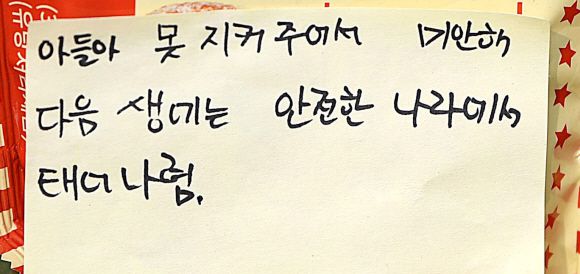 아들아 못 지켜 주어서 미안해
다음 생에는 안전한 나라에서
태어나렴.